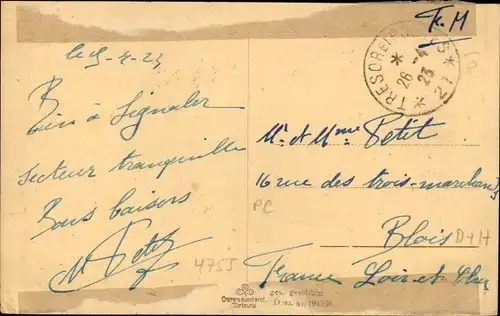 F.M
le 25-4-23
Rien à Signaler
Secteur tranquille
Bons baisers
Petit
TRESOR ET POSTES
* 27 *
26 -4 23
Mr et Mme Petit
16 rue des trois-marchands
Blois
France Loir et Cher
PC
D+H
4755
Cramers Kunstanst.
Dortmund
ges. geschützt